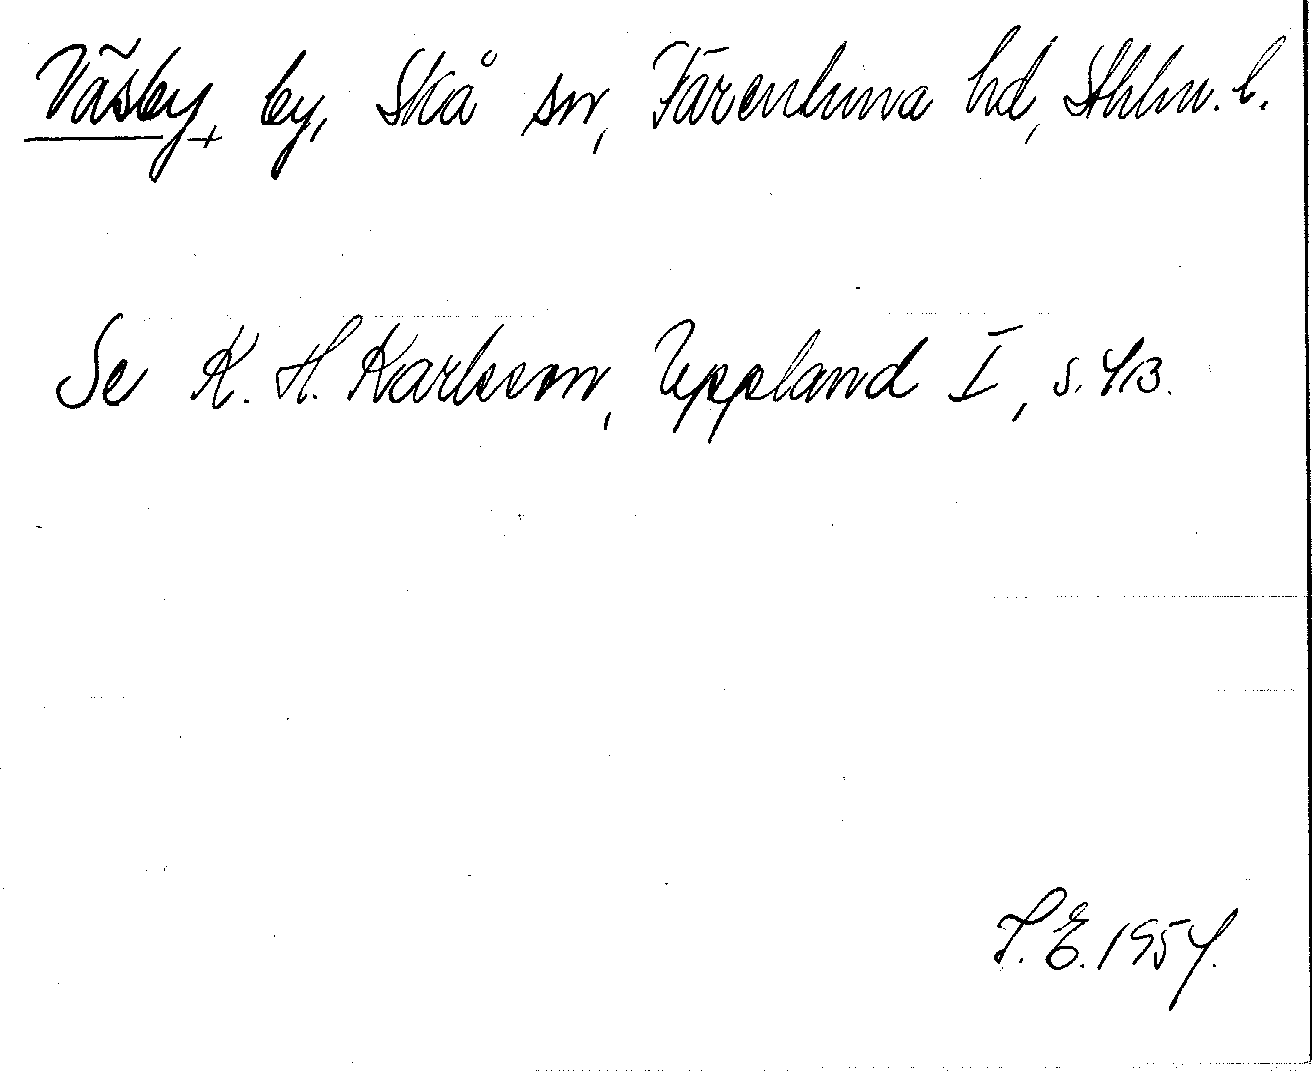 Väsby, by, Skå sn, Färentuna hd, Sthlm. l.
Se K. H. Karlsson, Uppland I, s. 413.
T. E. 1954.